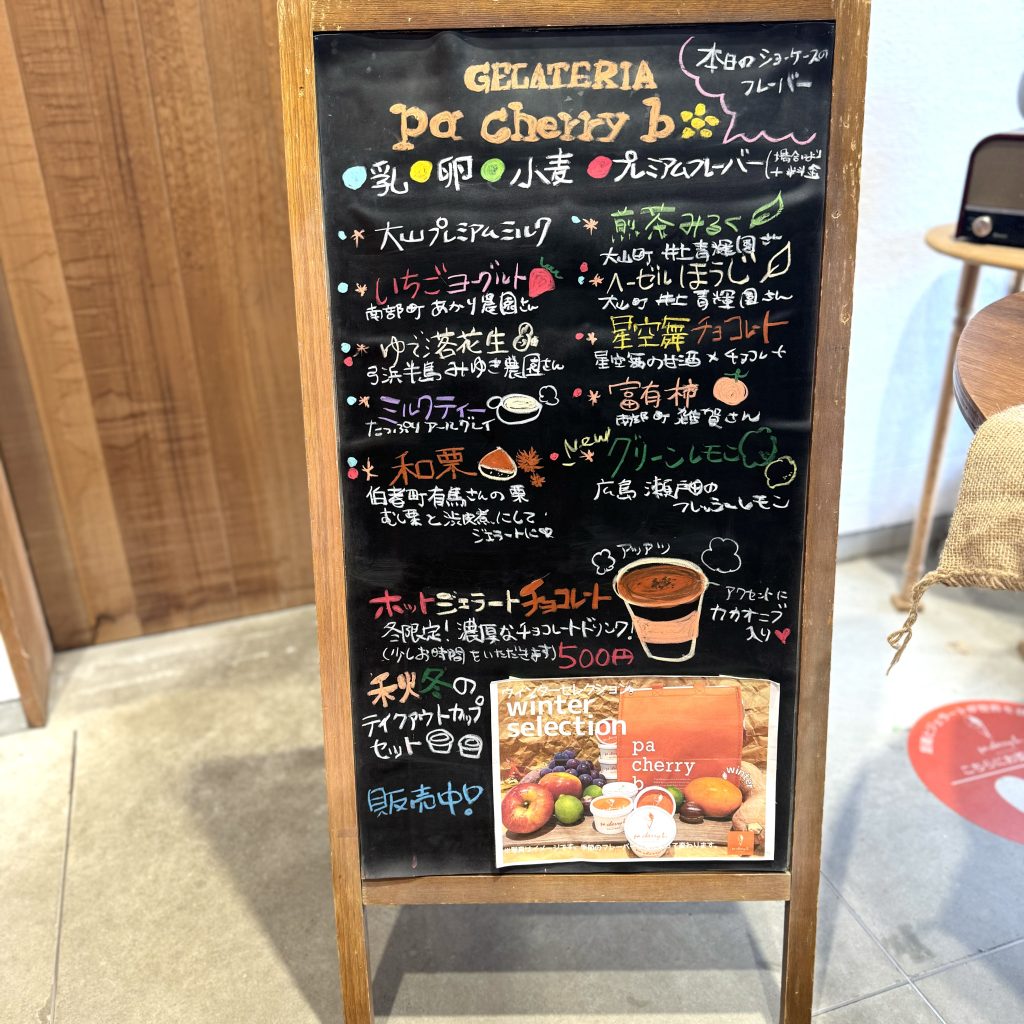 GELATERIA
pa cherry b
本日のショーケースの
フレーバー
乳 卵 小麦 プレミアムフレーバー(場合により
+料金
大山プレミアムミルク
いちごヨーグルト
南部町 あかり農園さん
ゆで落花生
弓浜半島 みゆき農園さん
ミルクティー
たっぷりアールグレイ
和栗
伯耆町有馬さんの栗
むし栗と渋皮煮にして
ジェラートに
煎茶みるく
大山町 井上青輝園さん
ヘーゼルほうじ
大山町 井上青輝園さん
星空舞チョコレート
星空舞の甘酒×チョコレート
富有柿
南部町 雑賀さん
New
グリーンレモン
広島 瀬戸田の
フレッシュレモン
アツアツ
ホットジェラートチョコレート
冬限定!濃厚なチョコレートドリンク!
(少しお時間をいただきます) 500円
アクセントに
カカオニブ
入り
秋冬の
テイクアウトカップ
セット
販売中!
ウインターセレクション
winter
selection
pa
cherry
b
winter
pa cherry b
※写真はイメージです。季節のフレーバー
て変わります。
こちらにお